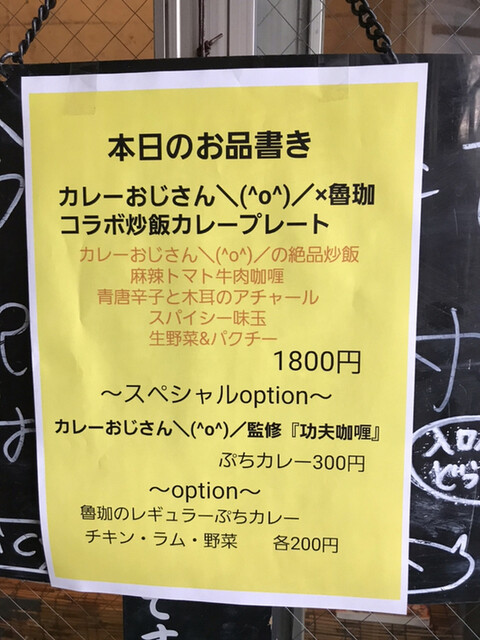 本日のお品書き
カレーおじさん＼(^o^)／×魯珈
コラボ炒飯カレープレート
カレーおじさん＼(^o^)／の絶品炒飯
麻辣トマト牛肉咖喱
青唐辛子と木耳のアチャール
スパイシー味玉
生野菜&パクチー
1800円
〜スペシャルoption〜
カレーおじさん＼(^o^)／監修『功夫咖喱』
ぷちカレー300円
〜option〜
魯珈のレギュラーぷちカレー
チキン・ラム・野菜　各200円
入口